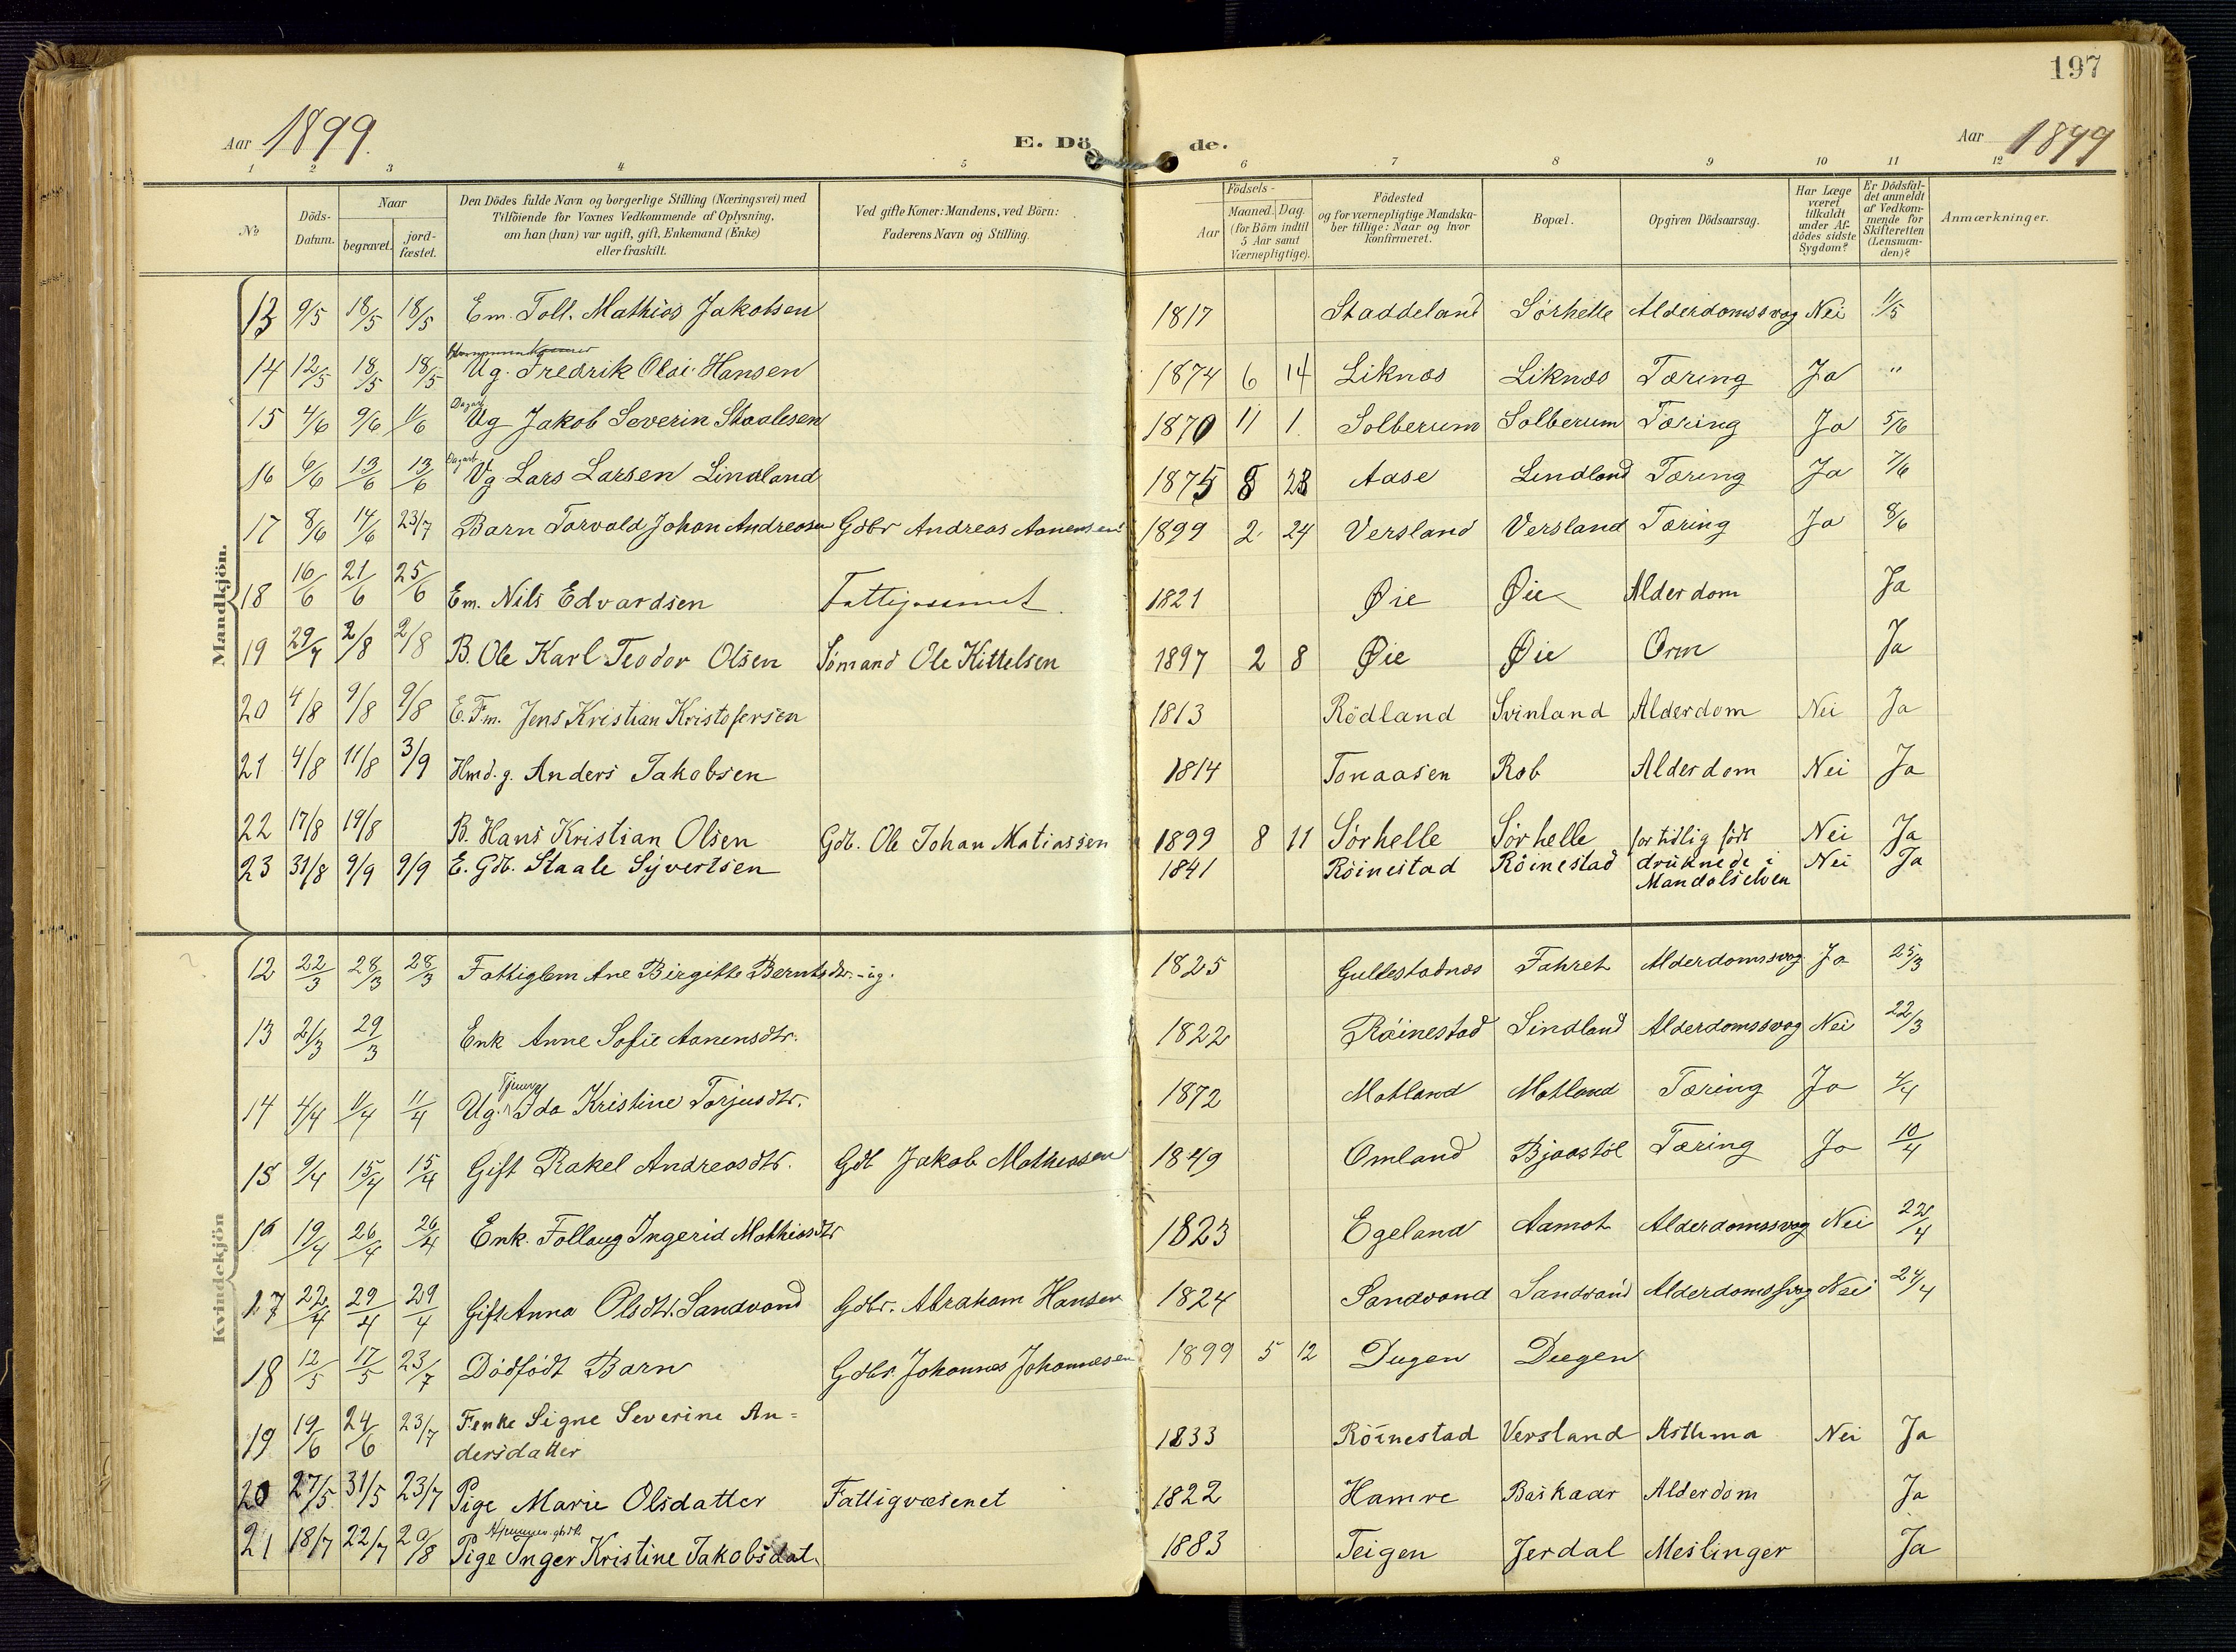 197
Aar 1899. E. Dö de. Aar 1899
1 2 3 4 5 6 7 8 9 10 11 12
No. Döds-Datum. Naar begravet. jord-fæstet. Den Dödes fulde Navn og borgerlige Stilling (Næringsvei) med Tilföiende for Voxnes Vedkommende af Oplysning, om han (hun) var ugift, gift, Enkemand (Enke) eller fraskilt. Ved gifte Koner: Mandens, ved Börn: Faderens Navn og Stilling. Födsels- Aar Maaned. Dag. (for Börn indtil 5 Aar samt Værnepligtige). Födested og for værnepligtige Mandska-ber tillige: Naar og hvor konfirmeret. Bopæl. Opgiven Dödsaarsag. Har Læge været tilkaldt under Af-dödes sidste Sygdom? Er Dödsfal-det anmeldt af Vedkom-mende for Skifteretten (Lensman-den)? Anmærkninger.
Mandkjön.
13 9/5 18/5 18/5 Em. Toll. Mathias Jakobsen 1817 Staddeland Sörhelle Alderdomssvag Nei 11/5
14 12/5 18/5 18/5 Ug. Fredrik Olai Hansen 1874 6 14 Liknæs Liknæs Tæring Ja "
15 4/6 9/6 11/6 Dagarb Ug Jakob Severin Staalesen 1870 11 1 Solberum Solberum Tæring Ja 5/6
16 6/6 13/6 13/6 Dagarb Ug Lars Larsen Lindland 1875 8 23 Aase Lindland Tæring Ja 7/6
17 8/6 14/6 23/7 Barn Torvald Johan Andreasen Gdbr Andreas Aanensen 1899 2 24 Versland Versland Tæring Ja 8/6
18 16/6 21/6 25/6 Em. Nils Edvardsen 1821 Øie Øie Alderdom Ja
19 29/7 2/8 2/8 B. Ole Karl Teodor Olsen Sömand Ole Kittelsen 1897 2 8 Øie Øie Orm Ja
20 4/8 9/8 9/8 E. Fm. Jens Kristian Kristofersen 1813 Rödland Svinland Alderdom Nei Ja
21 4/8 11/8 3/9 Hmd. g. Anders Jakobsen 1814 Tonaasen Rob Alderdom Nei Ja
22 17/8 19/8 B. Hans Kristian Olsen Gdb. Ole Johan Matiassen 1899 8 11 Sörhelle Sörhelle for tidlig födt Nei Ja
23 31/8 9/9 9/9 E. Gdb. Staale Syvertsen 1841 Röinestad Röinestad druknede i Mandalselven Nei Ja
Kvindekjön
12 22/3 28/3 28/3 Fattiglem Ane Birgitte Berntsdtr. - ug. 1825 Gullestadnæs Fahret Alderdomssvag Ja 25/3
13 21/3 29/3 Enk Anne Sofie Aanensdtr. 1822 Röinestad Lindland Alderdomssvag Nei 22/3
14 4/4 11/4 11/4 Ug. Ida Kristine Torjusdtr. 1872 Motland Motland Tæring Ja 4/4
15 9/4 15/4 15/4 Gift Rakel Andreasdtr. Gdb Jakob Mathiassen 1849 Omland Bjaastöl Tæring Ja 10/4
16 19/4 26/4 26/4 Enk. Tollaug Ingerid Mathiasdtr 1823 Egeland Aamot Alderdomssvag Nei 22/4
17 22/4 29/4 29/4 Gift Anna Olsdtr. Sandvand Gdbr. Abraham Hansen 1824 Sandvand Sandvand Alderdomssvag Nei 24/4
18 12/5 17/5 23/7 Dödfödt Barn Gdbr. Johannes Johannesen 1899 5 12 Dugen Dugen
19 19/6 24/6 23/7 F.enke Signe Severine An=
dersdatter 1833 Röinestad Versland Asthma Nei Ja
20 27/5 31/5 23/7 Pige Marie Olsdatter Fattigvæsenet 1822 Hamre Baskaar Alderdom Ja
21 18/7 22/7 20/8 Pige Inger Kristine Jakobsdat. 1883 Teigen Jerdal Meslinger Ja